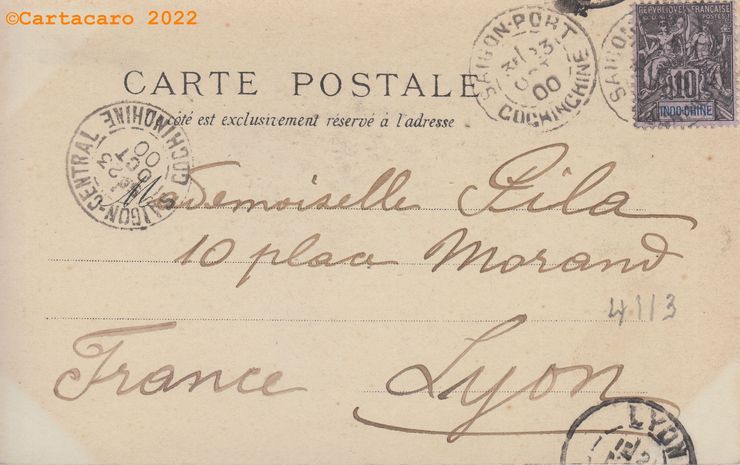 ©Cartacaro 2022
CARTE POSTALE
côté est exclusivement réservé à l'adresse
SAIGON-PORT
COCHINCHINE
23
OCT
00
SAIGON
RÉPUBLIQUE FRANÇAISE
POSTES
10
INDO-CHINE
SAIGON-CENTRAL
COCHINCHINE
23
OCT
00
Mademoiselle Pila
10 place Morand
4113
France Lyon
LYON